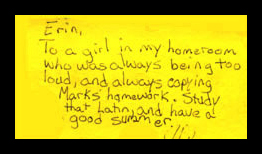 Erin,
To a girl in my homeroom
who was always being too
loud, and always copying
Marks homework. Study
that Latin, and have a
good summer.